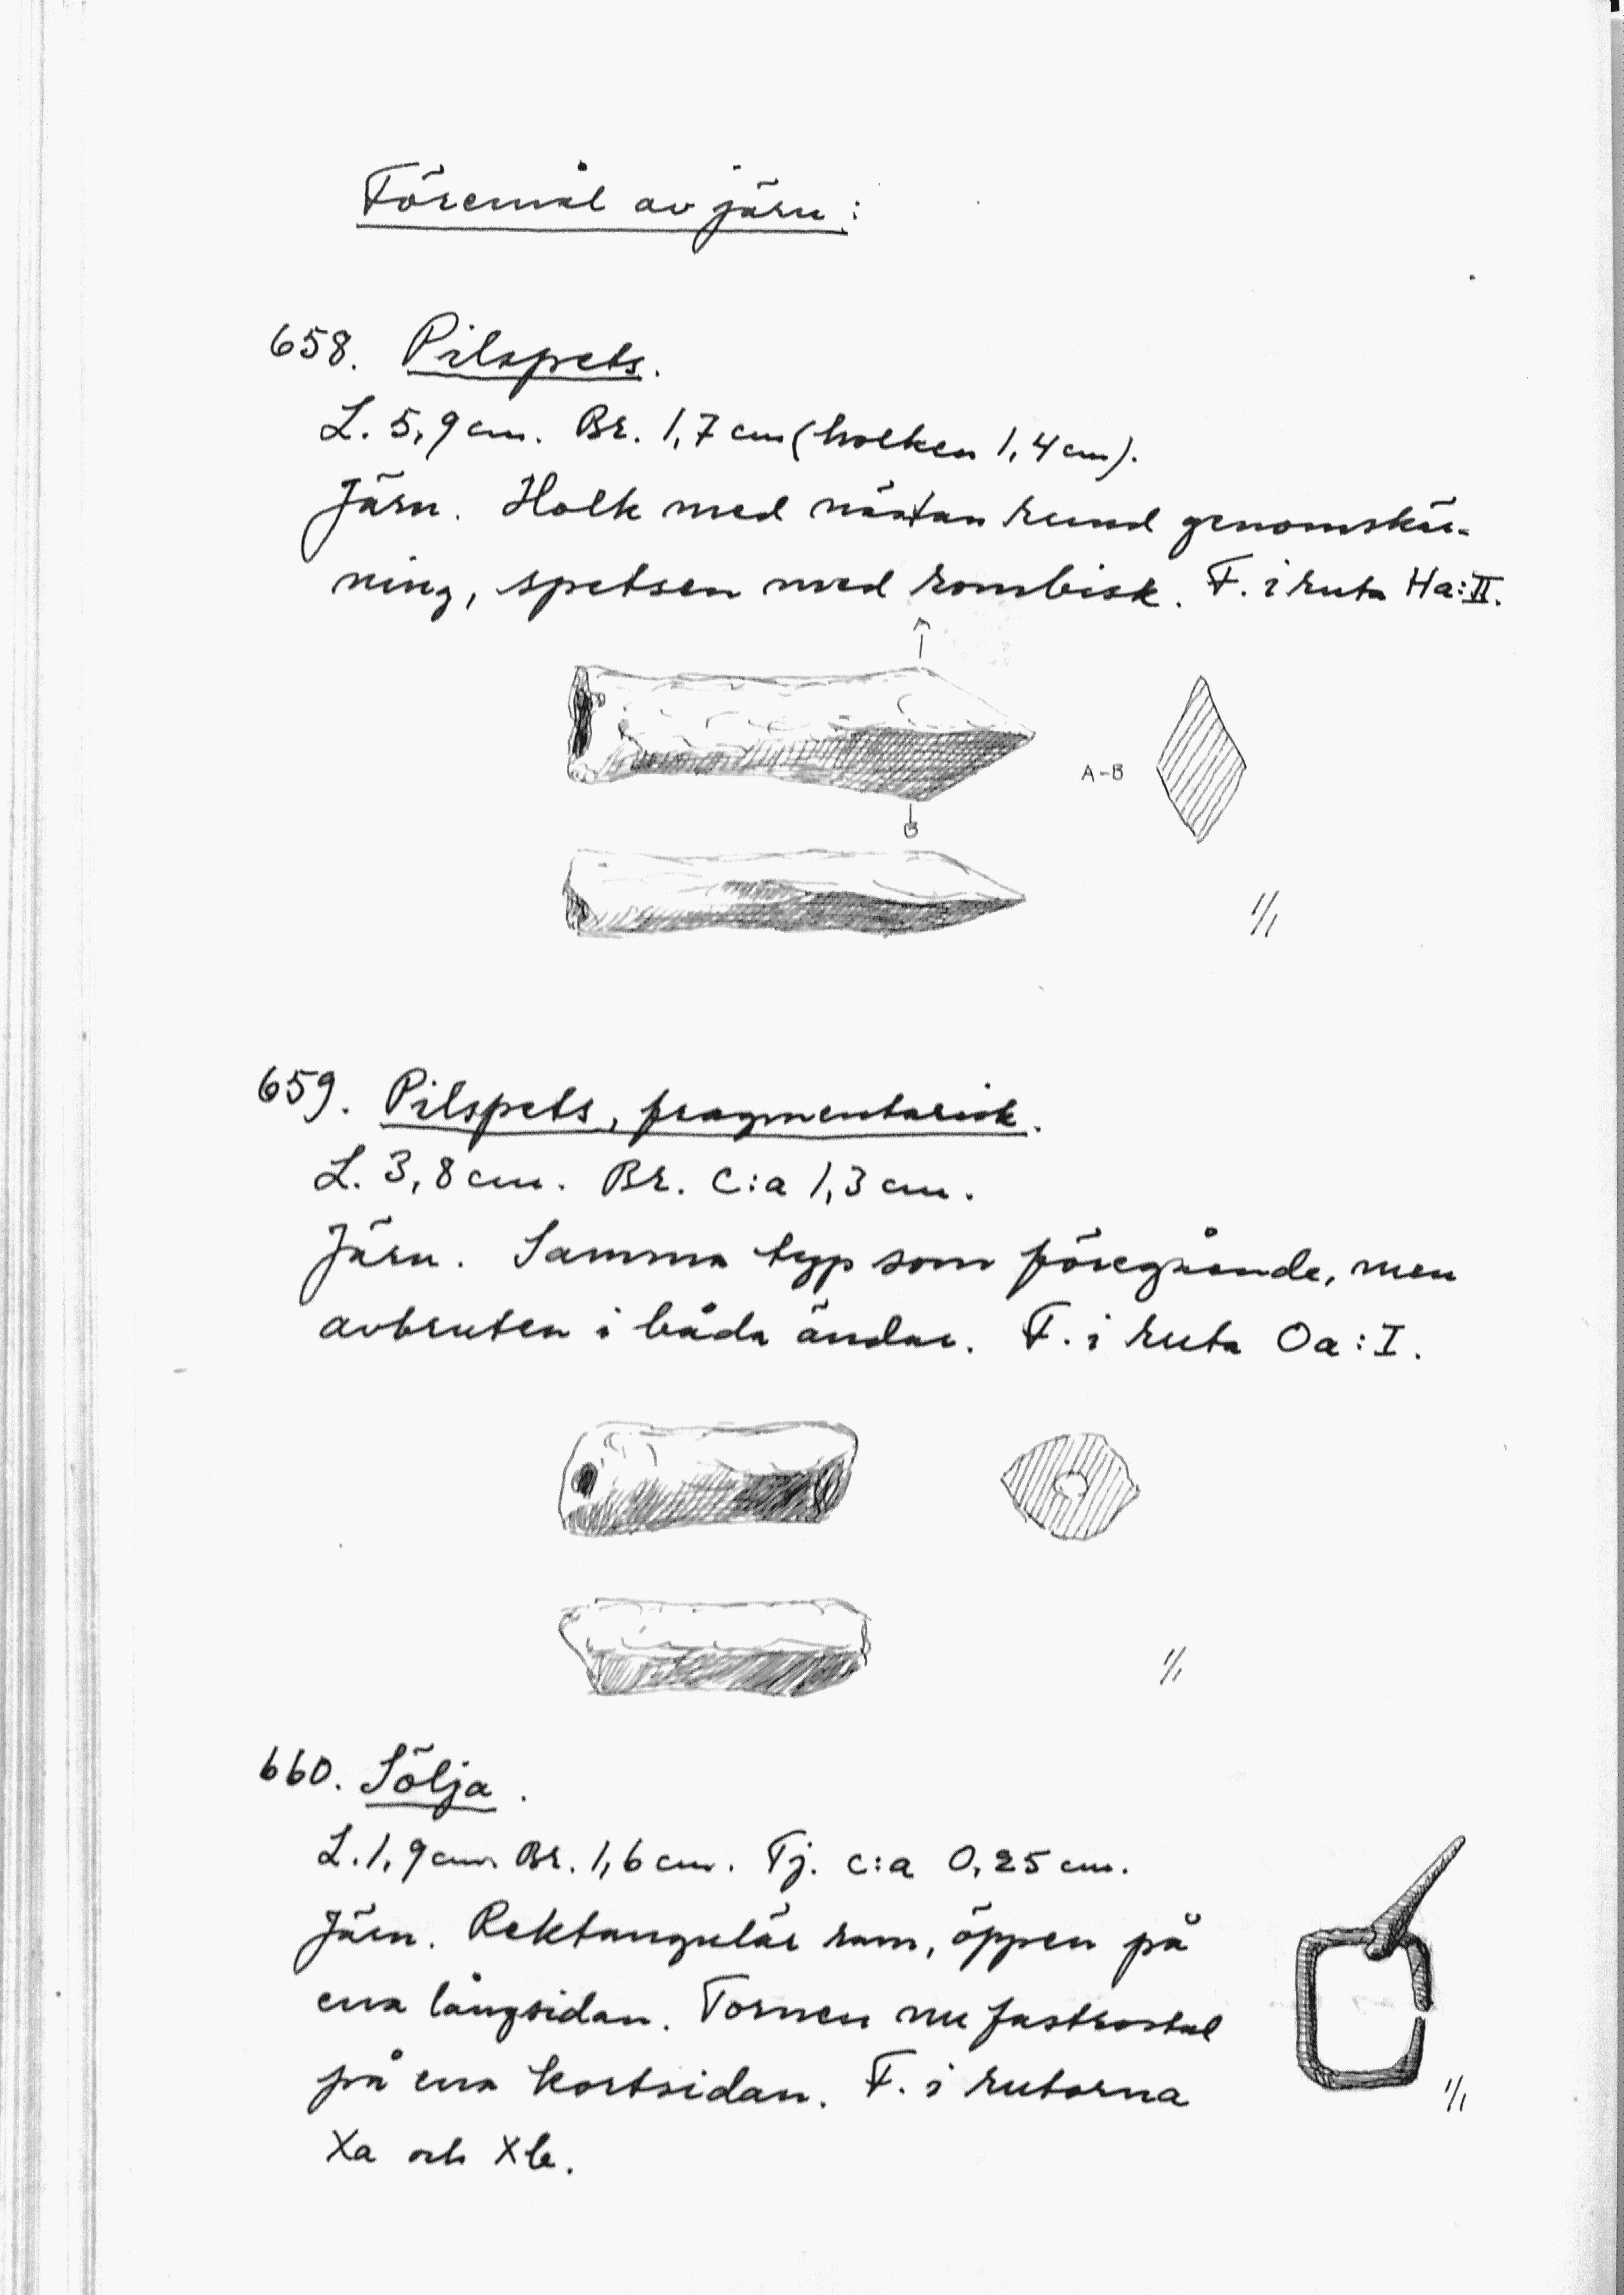 Föremål av järn:
658. Pilspets.
L. 5,9 cm. Br. 1,7 cm (holken 1,4 cm).
Järn. Holk med nästan rund genomskär-
ning, spetsen med rombisk. F. i ruta Ha:II.
A-B
B
1/1
659. Pilspets, fragmentarisk.
L. 3,8 cm. Br. c:a 1,3 cm.
Järn. Samma typ som föregående, men
avbruten i båda ändar. F. i ruta Oa:I.
1/1
660. Sölja.
L. 1,9 cm Br. 1,6 cm. Tj. c:a 0,25 cm.
Järn. Rektangulär ram, öppen på
ena långsidan. Tornen nu fastrostad
på ena kortsidan. F. i rutorna
1/1
Xa och Xb.